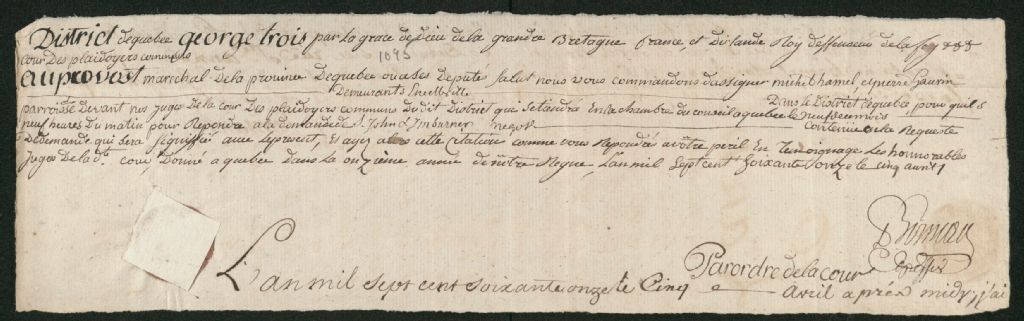 District de quebec george trois par la grace de Dieu de la grande Bretagne france et Dirlande Roy deffenseur de la foy &&&
Cour Des plaidoyers communs
1095
au provost marechal De la province De quebec ou a ses Deputés Salut nous vous commandons dassigner michel hamel, et pierre
Demeurants En cette ville
parroisse devant nos juges De la cour Des plaidoyers communs du dit District qui se tiendra En la chambre du conseil a quebec le neuf du mois
Dans le District de quebec, pour quils
neuf heures Du matin pour Repondre a la demande de S. John negot
contenue en la Requeste
De demande qui sera signiffiée avec le present, Et ayez alors cette citation comme vous Repondrés a votre peril En Temoignage Les honnorables
Juges De la de. cour Donné a quebec dans la onzieme année de nôtre Regne, L'an mil sept cent soixante onze le cinq avril
Par ordre de la cour
L'an mil sept cent soixante onze le Cinq avril après midy, j'ai